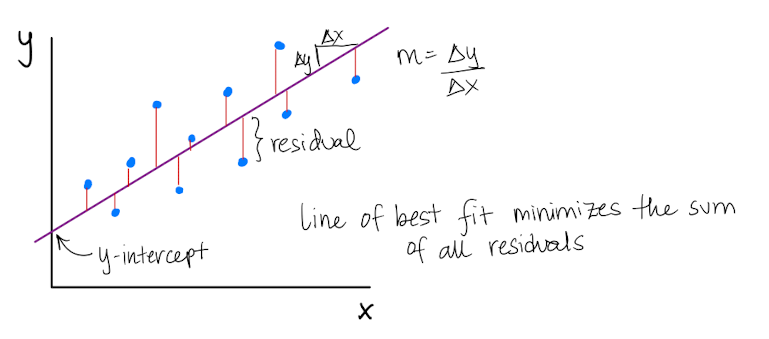 y
Δx
Δy
m = Δy
Δx
residual
line of best fit minimizes the sum
of all residuals
y-intercept
x